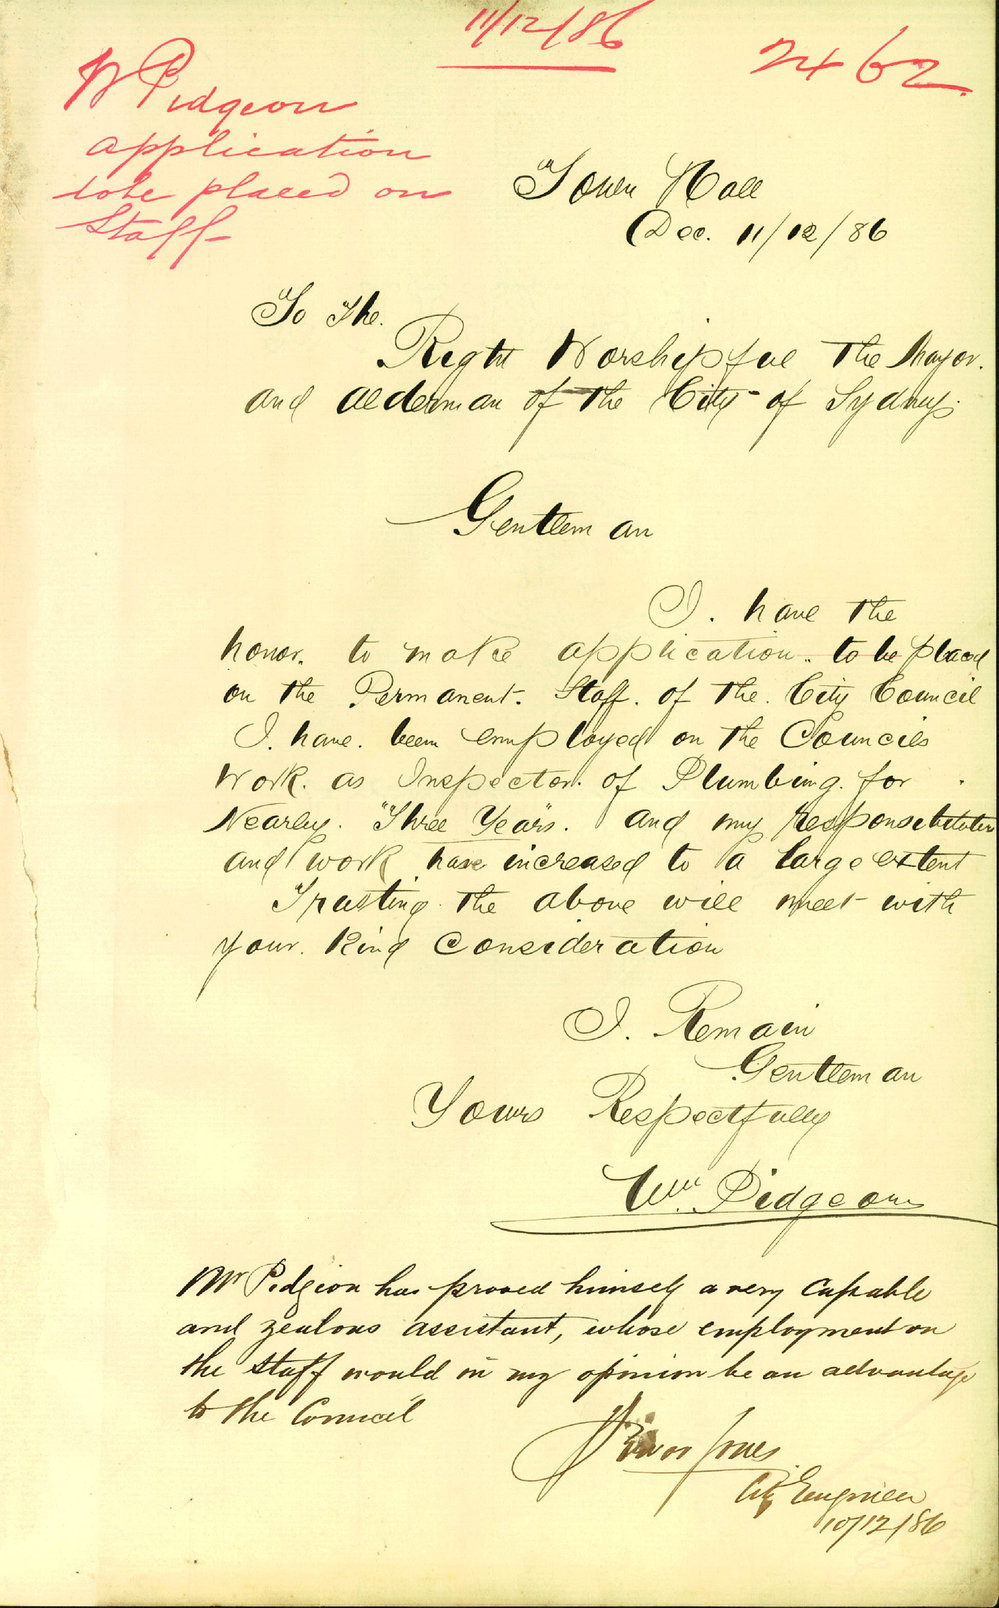 11/12/86
2462
W Pidgeon
application
to be placed on
Staff
Town Hall
Dec. 11/12/86
To The.
Right Worshipful The Mayor.
and Alderman of the City of Sydney.
Gentleman
I. have the
honor. to make application. to be placed
on the Permanent. Staff. of the. City Council
I. have. been employed on the Councils
Work. as Inspector. of Plumbing. for
Nearley. Three Years. and my
and work have increased to a large extent
Trusting the above will meet with
your. kind Consideration
I. Remain
Gentleman
Yours Respectfully
Wm. Pidgeon
Mr Pidgion has proved himself a very capable
and zealous assistant, whose employment on
the staff would in my opinion be an advantage
to the Council
Jones
City Engineer
10/12/86